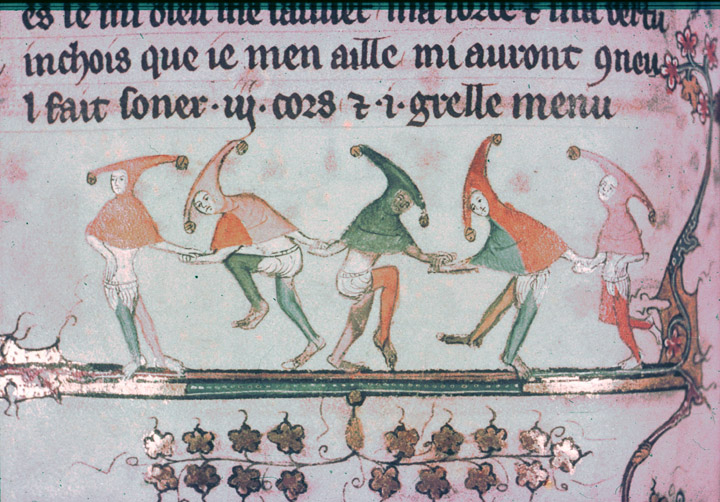 es se mi dieu me ma force ⁊ ma vertu
inchois que ie men aille mi auront 9neu
l fait soner · iij · cors ⁊ · i · grelle menu